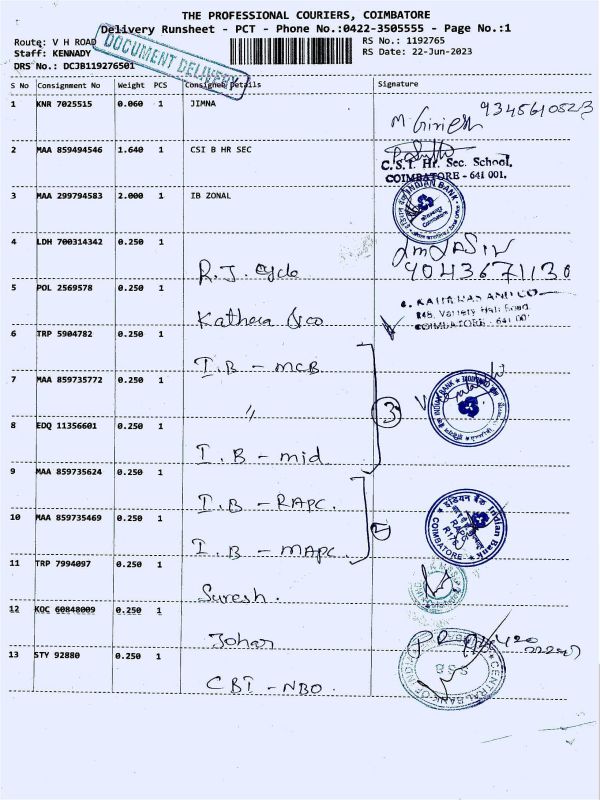 THE PROFESSIONAL COURIERS, COIMBATORE
Delivery Runsheet - PCT - Phone No.:0422-3505555 - Page No.:1
Route: V H ROAD
RS No.: 1192765
Staff: KENNADY
RS Date: 22-Jun-2023
DRS No.: DCJB119276501
DOCUMENT DELIVERY
S No Consignment No Weight PCS Consignee Details Signature
1 KNR 7025515 0.060 1 JIMNA
9345610523
2 MAA 859494546 1.640 1 CSI B HR SEC
C.S.I. Hr. Sec. School,
COIMBATORE - 641 001.
3 MAA 299794583 2.000 1 IB ZONAL
INDIAN BANK
Coimbatore
4 LDH 700314342 0.250 1 R.J. Cycle
9043671130
5 POL 2569578 0.250 1 Kathera & co
COIMBATORE - 641 001
6 TRP 5904782 0.250 1 I.B - MCB
7 MAA 859735772 0.250 1 "
3
INDIAN BANK
8 EDQ 11356601 0.250 1 I.B - mid
9 MAA 859735624 0.250 1 I.B - RAPC.
इंडियन बैंक Indian Bank
RAPC
COIMBATORE
10 MAA 859735469 0.250 1 I.B - MAPC.
11 TRP 7994097 0.250 1 Suresh.
12 KOC 60848009 0.250 1 Johar
13 STY 92880 0.250 1 CBI - NBO.
CENTRAL BANK OF INDIA